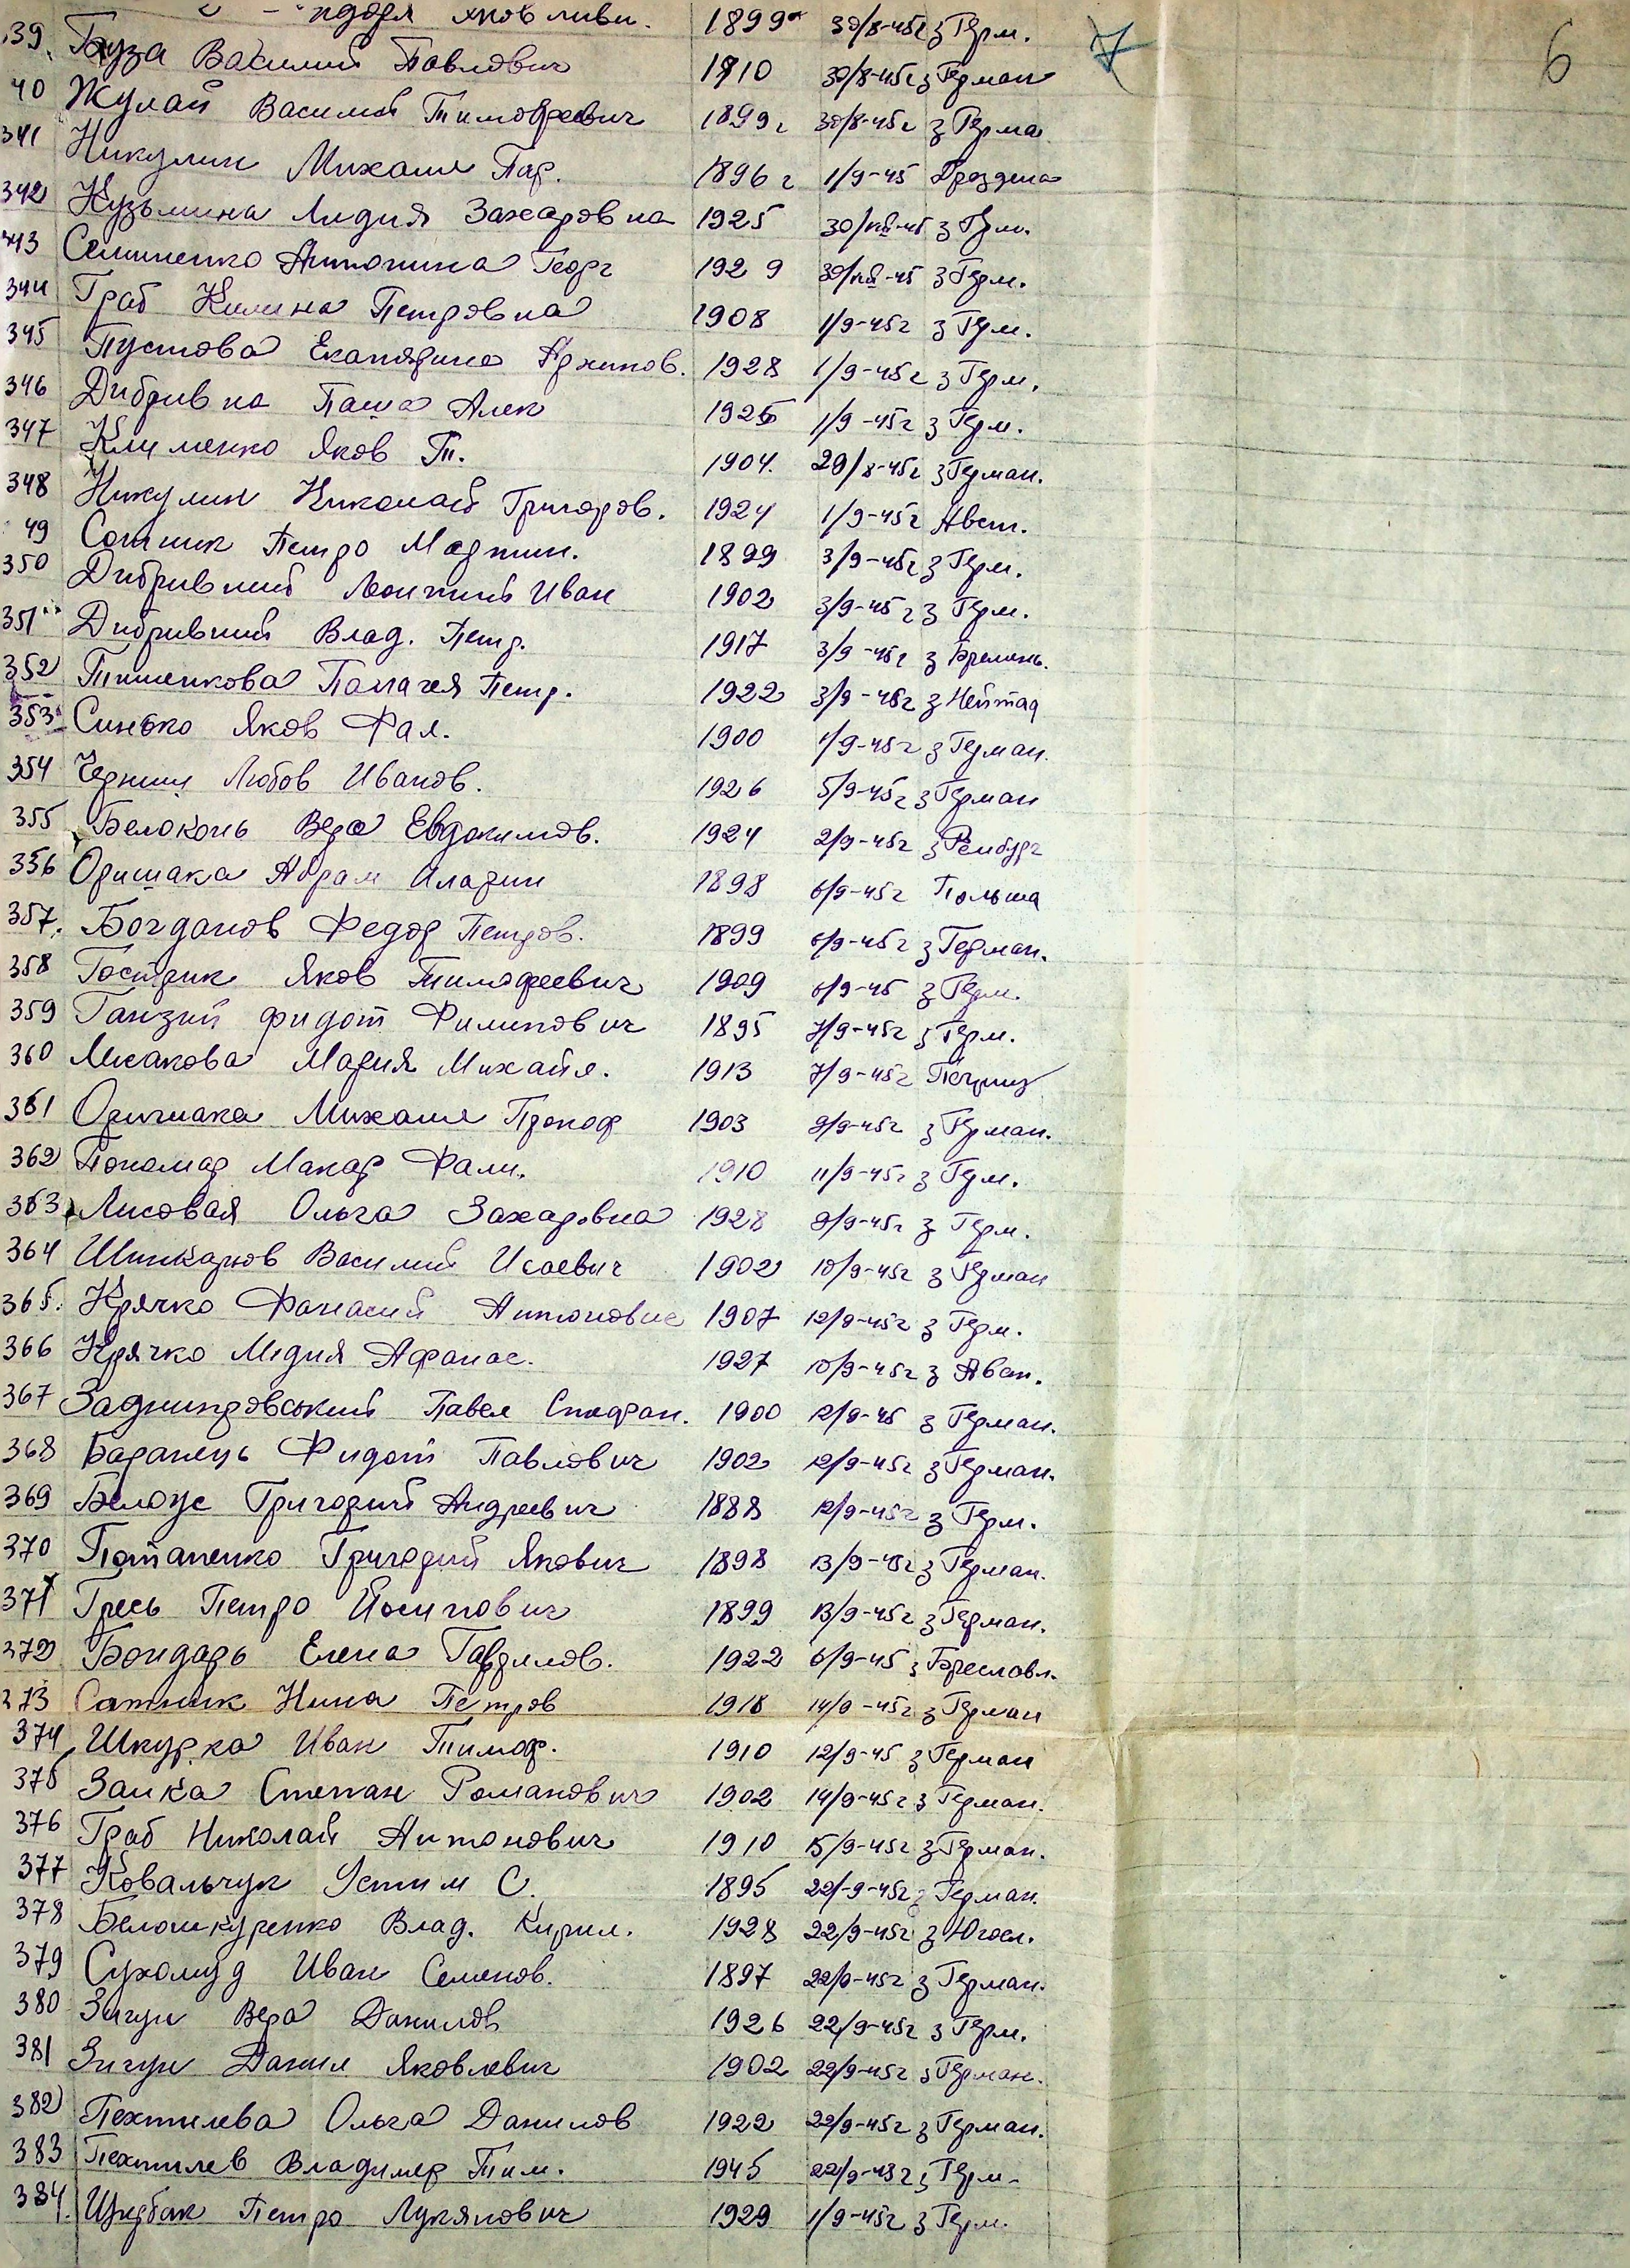 Яковливи. 1899 30/8-45г з Герм.
39. Буза Василий Павлович 1910 30/8-45г з Герман
40 Жулай Василий Тимофеевич 1899г 30/8-45г з Герма
341 Никулин Михаил Пар. 1896г 1/9-45 Дрездена
342 Кузьмина Лидия Захаровна 1925 30/VIII-45 з Герм.
343 Семиненко Антонина Георг 1929 30/VIII-45 з Герм.
344 Граб Килина Петровна 1908 1/9-45г з Герм.
345 Пустова Екатярина Архипов. 1928 1/9-45г з Герм.
346 Дибривна Паша Алек 1926 1/9-45г з Герм.
347 Клименко Яков Т. 1904. 29/8-45г з Герман.
348 Никулин Николай Григоров. 1924 1/9-45г Авст.
49 Сотник Петро Мартин. 1899 3/9-45г з Герм.
350 Дибривний Леонтий Иван 1902 3/9-45г з Герм.
351 Дибривний Влад. Петр. 1917 3/9-45г з Бремень.
352 Тишенкова Палагея Петр. 1922 3/9-45г з Нейтад
353 Синько Яков Фал. 1900 1/9-45г з Герман.
354 Черниш Любов Иванов. 1926 5/9-45г з Герман
355 Белоконь Вера Евдокимов. 1924 2/9-45г з Рембург
356 Оришака Абрам Иларин 1898 6/9-45г Польша
357. Богданов Федор Петров. 1899 6/9-45г з Герман.
358 Гострик Яков Тимофеевич 1909 6/9-45 з Герм.
359 Ганзий Фидот Филипович 1895 7/9-45г з Герм.
360 Лисакова Мария Михайл. 1913 7/9-45г
361 Оришака Михаил Прокоф 1903 9/9-45г з Герман.
362 Пономар Макар Фали. 1910 11/9-45г з Герм.
363 Лисовая Ольга Захаровна 1928 9/9-45г з Герм.
364 Шинкарюв Василий Исаевич 1902 10/9-45г з Герман
365. Крячко Фанасий Антонович 1907 12/9-45г з Герм.
366 Крячко Лидия Афанас. 1927 10/9-45г з Авст.
367 Заднипровський Павел Стефан. 1900 12/9-45 з Герман.
368 Баранець Фидот Павлович 1902 12/9-45г з Герман.
369 Белоус Григорий Андреевич 1888 12/9-45г з Герм.
370 Потапенко Григорий Якович 1898 13/9-45г з Герман.
371 Гресь Петро Йосипович 1899 13/9-45г з Герман.
372 Бондарь Елена Гаврилов. 1922 6/9-45 з Бреславл.
373 Сатник Нина Петров 1918 14/9-45г з Герман
374 Шкурка Иван Тимоф. 1910 12/9-45 з Герман
375 Заика Степан Романович 1902 14/9-45г з Герман.
376 Граб Николай Антонович 1910 15/9-45г з Герман.
377 Ковальчук Устим С. 1895 22/9-45г з Герман.
378 Белошкуренко Влад. Кирил. 1928 22/9-45г з Югосл.
379 Сухомуд Иван Семенов. 1897 22/9-45г з Герман.
380 Зигун Вера Данилов 1926 22/9-45г з Герм.
381 Зигун Данил Яковлевич 1902 22/9-45г з Герман.
382 Пехтилева Ольга Данилов 1922 22/9-45г з Герман.
383 Пехтилев Владимер Тим. 1945 22/9-45г з Герм.
384. Щербак Петро Лукянович 1929 1/9-45г з Герм.
7
6